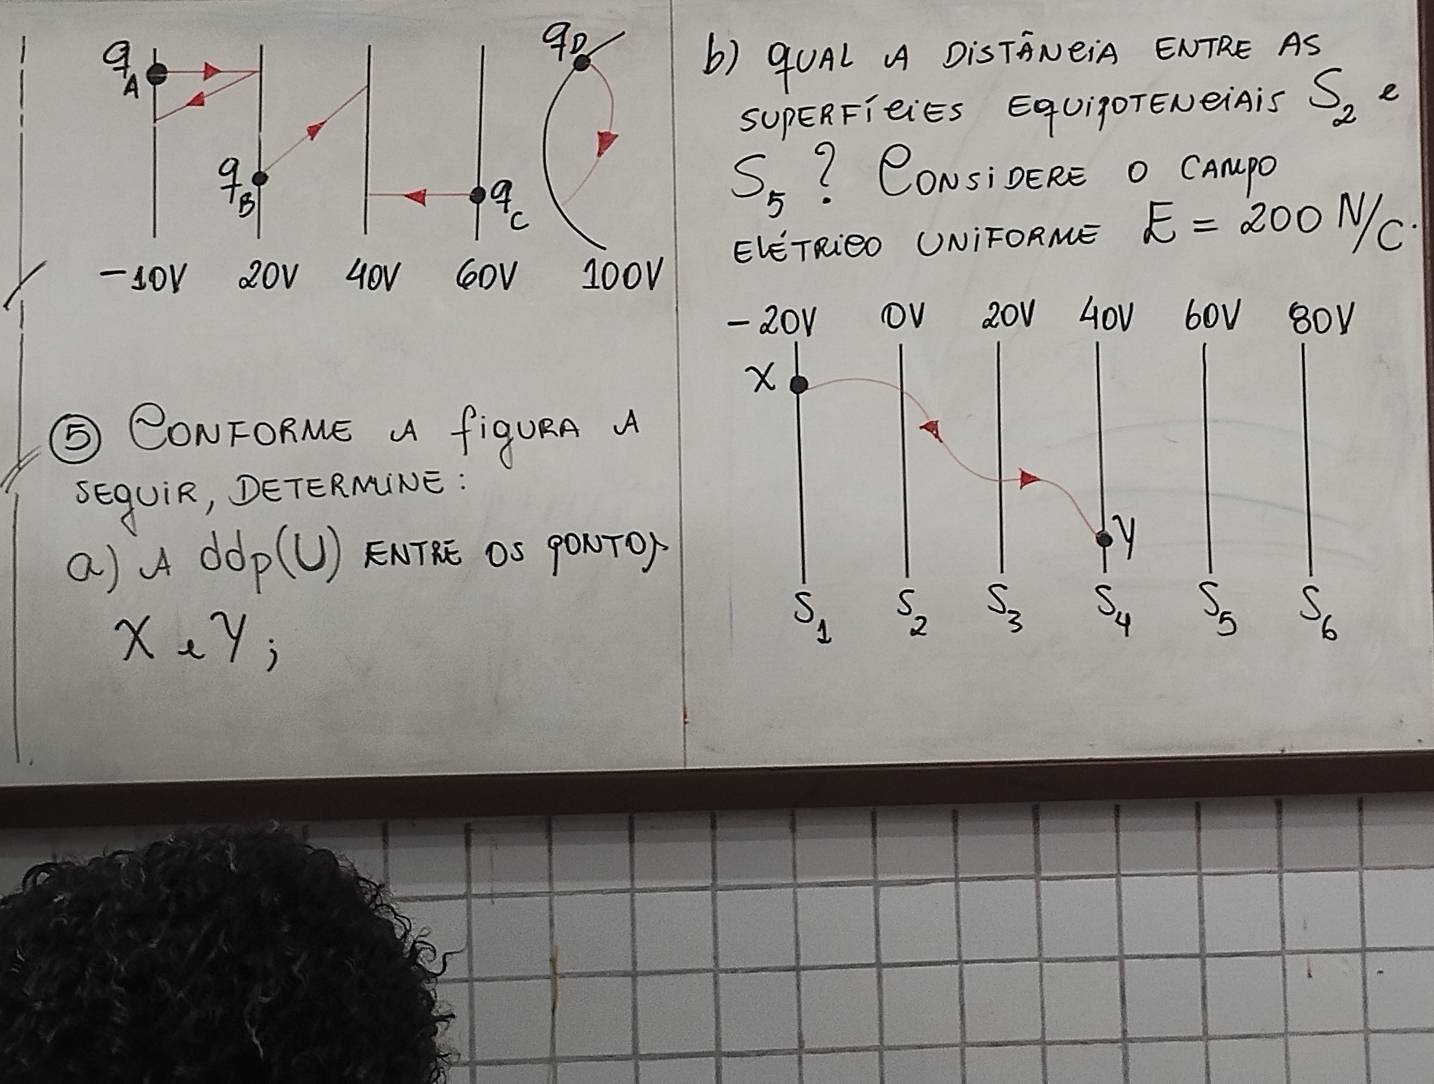 qA
qB
qC
qD
-10V 20V 40V 60V 100V
5 CONFORME A FIGURA A
SEGUIR, DETERMINE:
a) A ddp(U) ENTRE OS PONTOS
X e Y;
b) QUAL A DISTÂNCIA ENTRE AS
SUPERFÍCIES EQUIPOTENCIAIS S2 e
S5? CONSIDERE O CAMPO
ELÉTRICO UNIFORME E = 200 N/C.
-20V 0V 20V 40V 60V 80V
X
Y
S1 S2 S3 S4 S5 S6